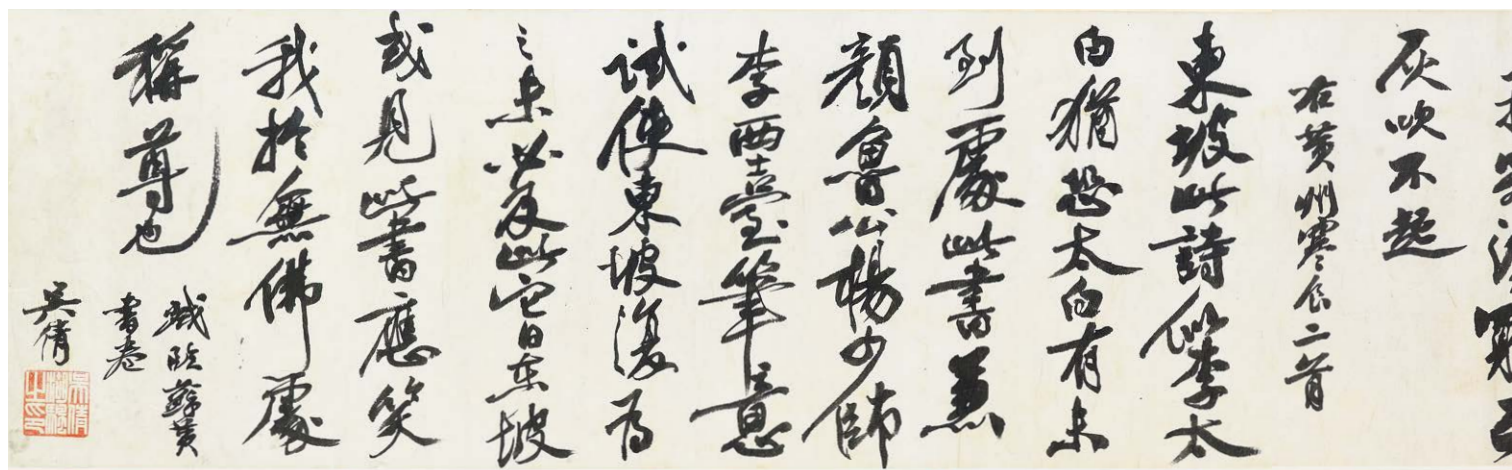 灰吹不起
右黃州寒食二首
東坡此詩似李太
白猶恐太白有未
到處此書兼
顏魯公楊少師
李西臺筆意
試使東坡復為
之未必及此它日東坡
或見此書應笑
我於無佛處
稱尊也
戲臨蘇黃
書卷
吳倩